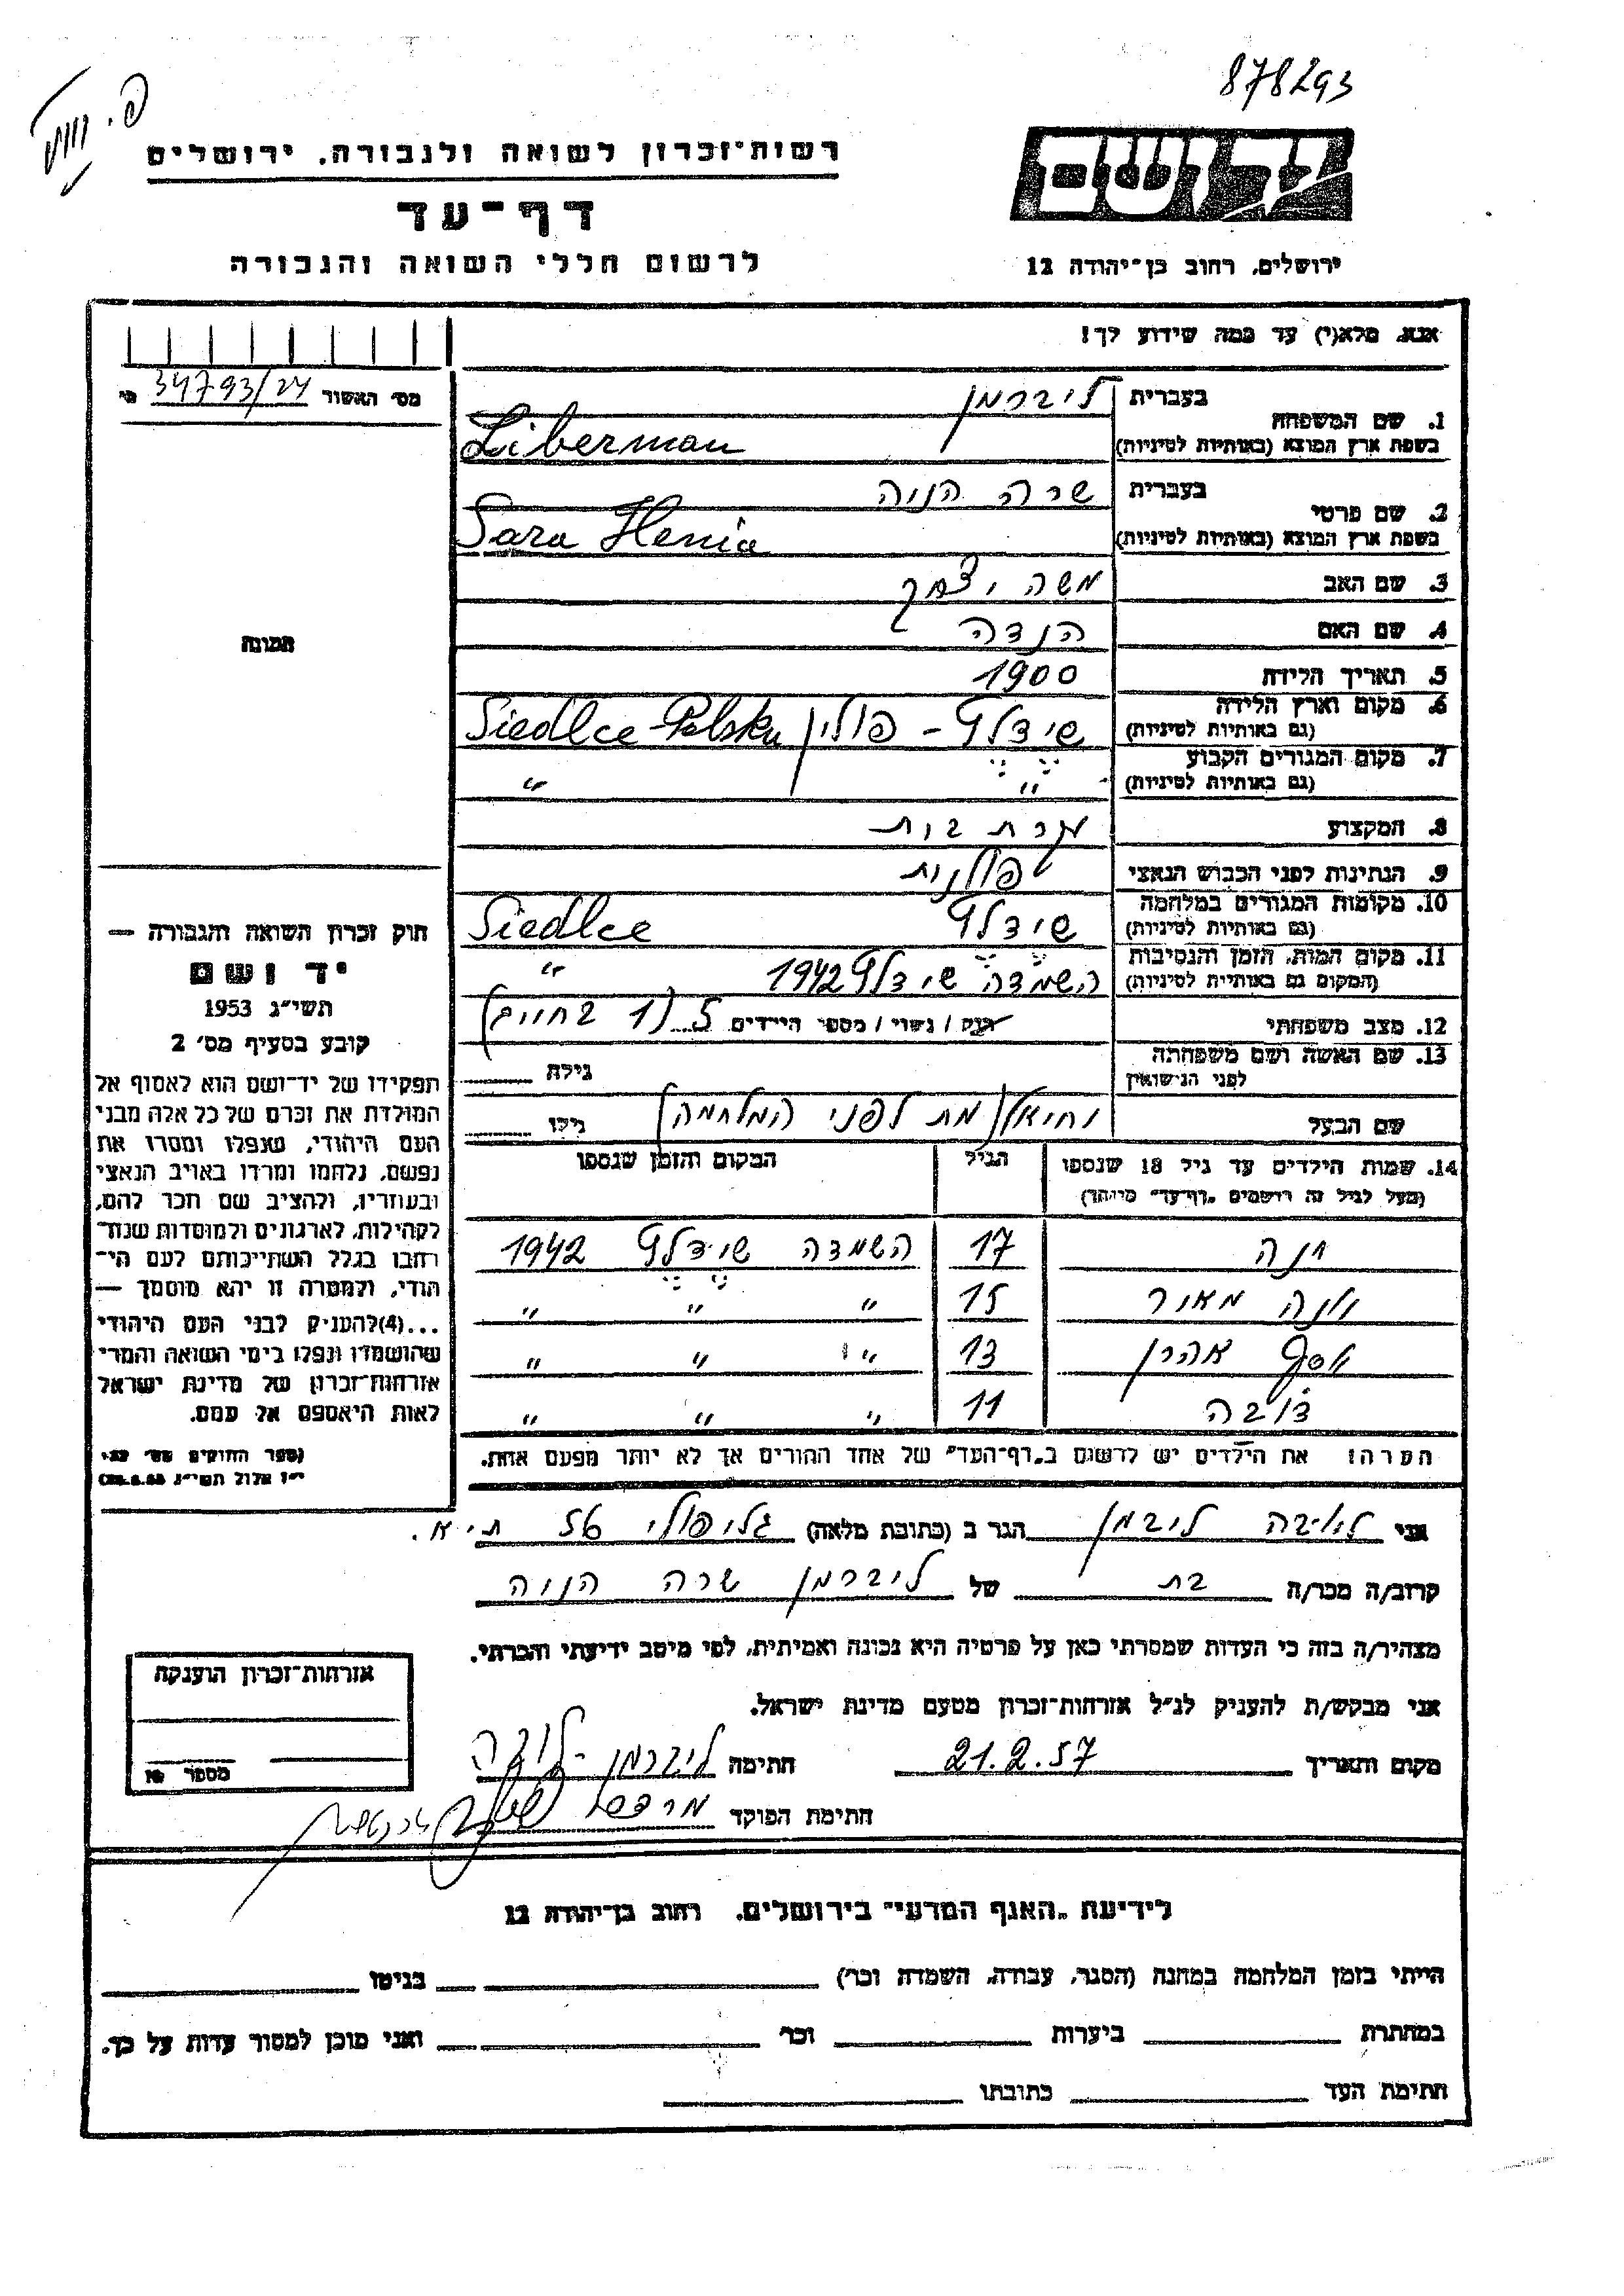 878293
רשות־זכרון לשואה ולגבורה, ירושלים
דף־עד
לרשום חללי השואה והגבורה
יד ושם
ירושלים, רחוב בן־יהודה 12
אנא, מלא(י) עד כמה שידוע לך!
מס׳ האשור 34793/24
1. שם המשפחה
בעברית ליברמן
בשפת ארץ המוצא (באותיות לטיניות) Liberman
2. שם פרטי
בעברית שרה הניה
בשפת ארץ המוצא (באותיות לטיניות) Sara Henia
3. שם האב משה יצחק
4. שם האם הנדה
5. תאריך הלידה 1900
6. מקום וארץ הלידה (גם באותיות לטיניות) שידלץ - פולין Siedlce-Polska
7. מקום המגורים הקבוע (גם באותיות לטיניות) " "
8. המקצוע עקרת בית
9. הנתינות לפני הכבוש הנאצי פולנית
10. מקומות המגורים במלחמה (גם באותיות לטיניות) שידלץ Siedlce
11. מקום המות, הזמן והנסיבות (המקום גם באותיות לטיניות) השמדה שידלץ 1942 "
12. מצב משפחתי רווק / נשוי / מספר הילדים 5 (1 בחיים)
13. שם האשה ושם משפחתה לפני הנישואין גילה
שם הבעל (מת לפני המלחמה) גילו
תמונה
14. שמות הילדים עד גיל 18 שנספו הגיל המקום והזמן שנספו
(מעל לגיל זה רושמים „דף־עד" מיוחד)
חנה 17 השמדה שידלץ 1942
15 " " "
אהרן 13 " " "
11 " " "
הערה: את הילדים יש לרשום ב„דף־העד" של אחד ההורים אך לא יותר מפעם אחת.
חוק זכרון השואה והגבורה —
יד ושם
תשי״ג 1953
קובע בסעיף מס׳ 2
תפקידו של יד־ושם הוא לאסוף אל
המולדת את זכרם של כל אלה מבני
העם היהודי, שנפלו ומסרו את
נפשם, נלחמו ומרדו באויב הנאצי
ובעוזריו, ולהציב שם וזכר להם,
לקהילות, לארגונים ולמוסדות שנח־
רבו בגלל השתייכותם לעם הי־
הודי, ולמטרה זו יהא מוסמך —
...(4) להעניק לבני העם היהודי
שהושמדו ונפלו בימי השואה והמרי
אזרחות־זכרון של מדינת ישראל
לאות היאספם אל עמם.
(ספר החוקים מס׳ 132,
י״ז אלול תשי״ג 28.8.53)
אני ליברמן הגר ב (כתובת מלאה) גליפולי 56 ת״א.
קרוב/ה מכר/ה בת של ליברמן שרה הניה
מצהיר/ה בזה כי העדות שמסרתי כאן על פרטיה היא נכונה ואמיתית, לפי מיטב ידיעתי והכרתי.
אני מבקש/ת להעניק לנ״ל אזרחות־זכרון מטעם מדינת ישראל.
מקום ותאריך 21.2.57 חתימה ליברמן
חתימת הפוקד
אזרחות־זכרון הוענקה
מספר
לידיעת „האגף המדעי" בירושלים, רחוב בן־יהודה 12
הייתי בזמן המלחמה במחנה (הסגר, עבודה, השמדה וכו׳) בגיטו
במחתרת ביערות וכו׳ ואני מוכן למסור עדות על כך.
חתימת העד כתובתו